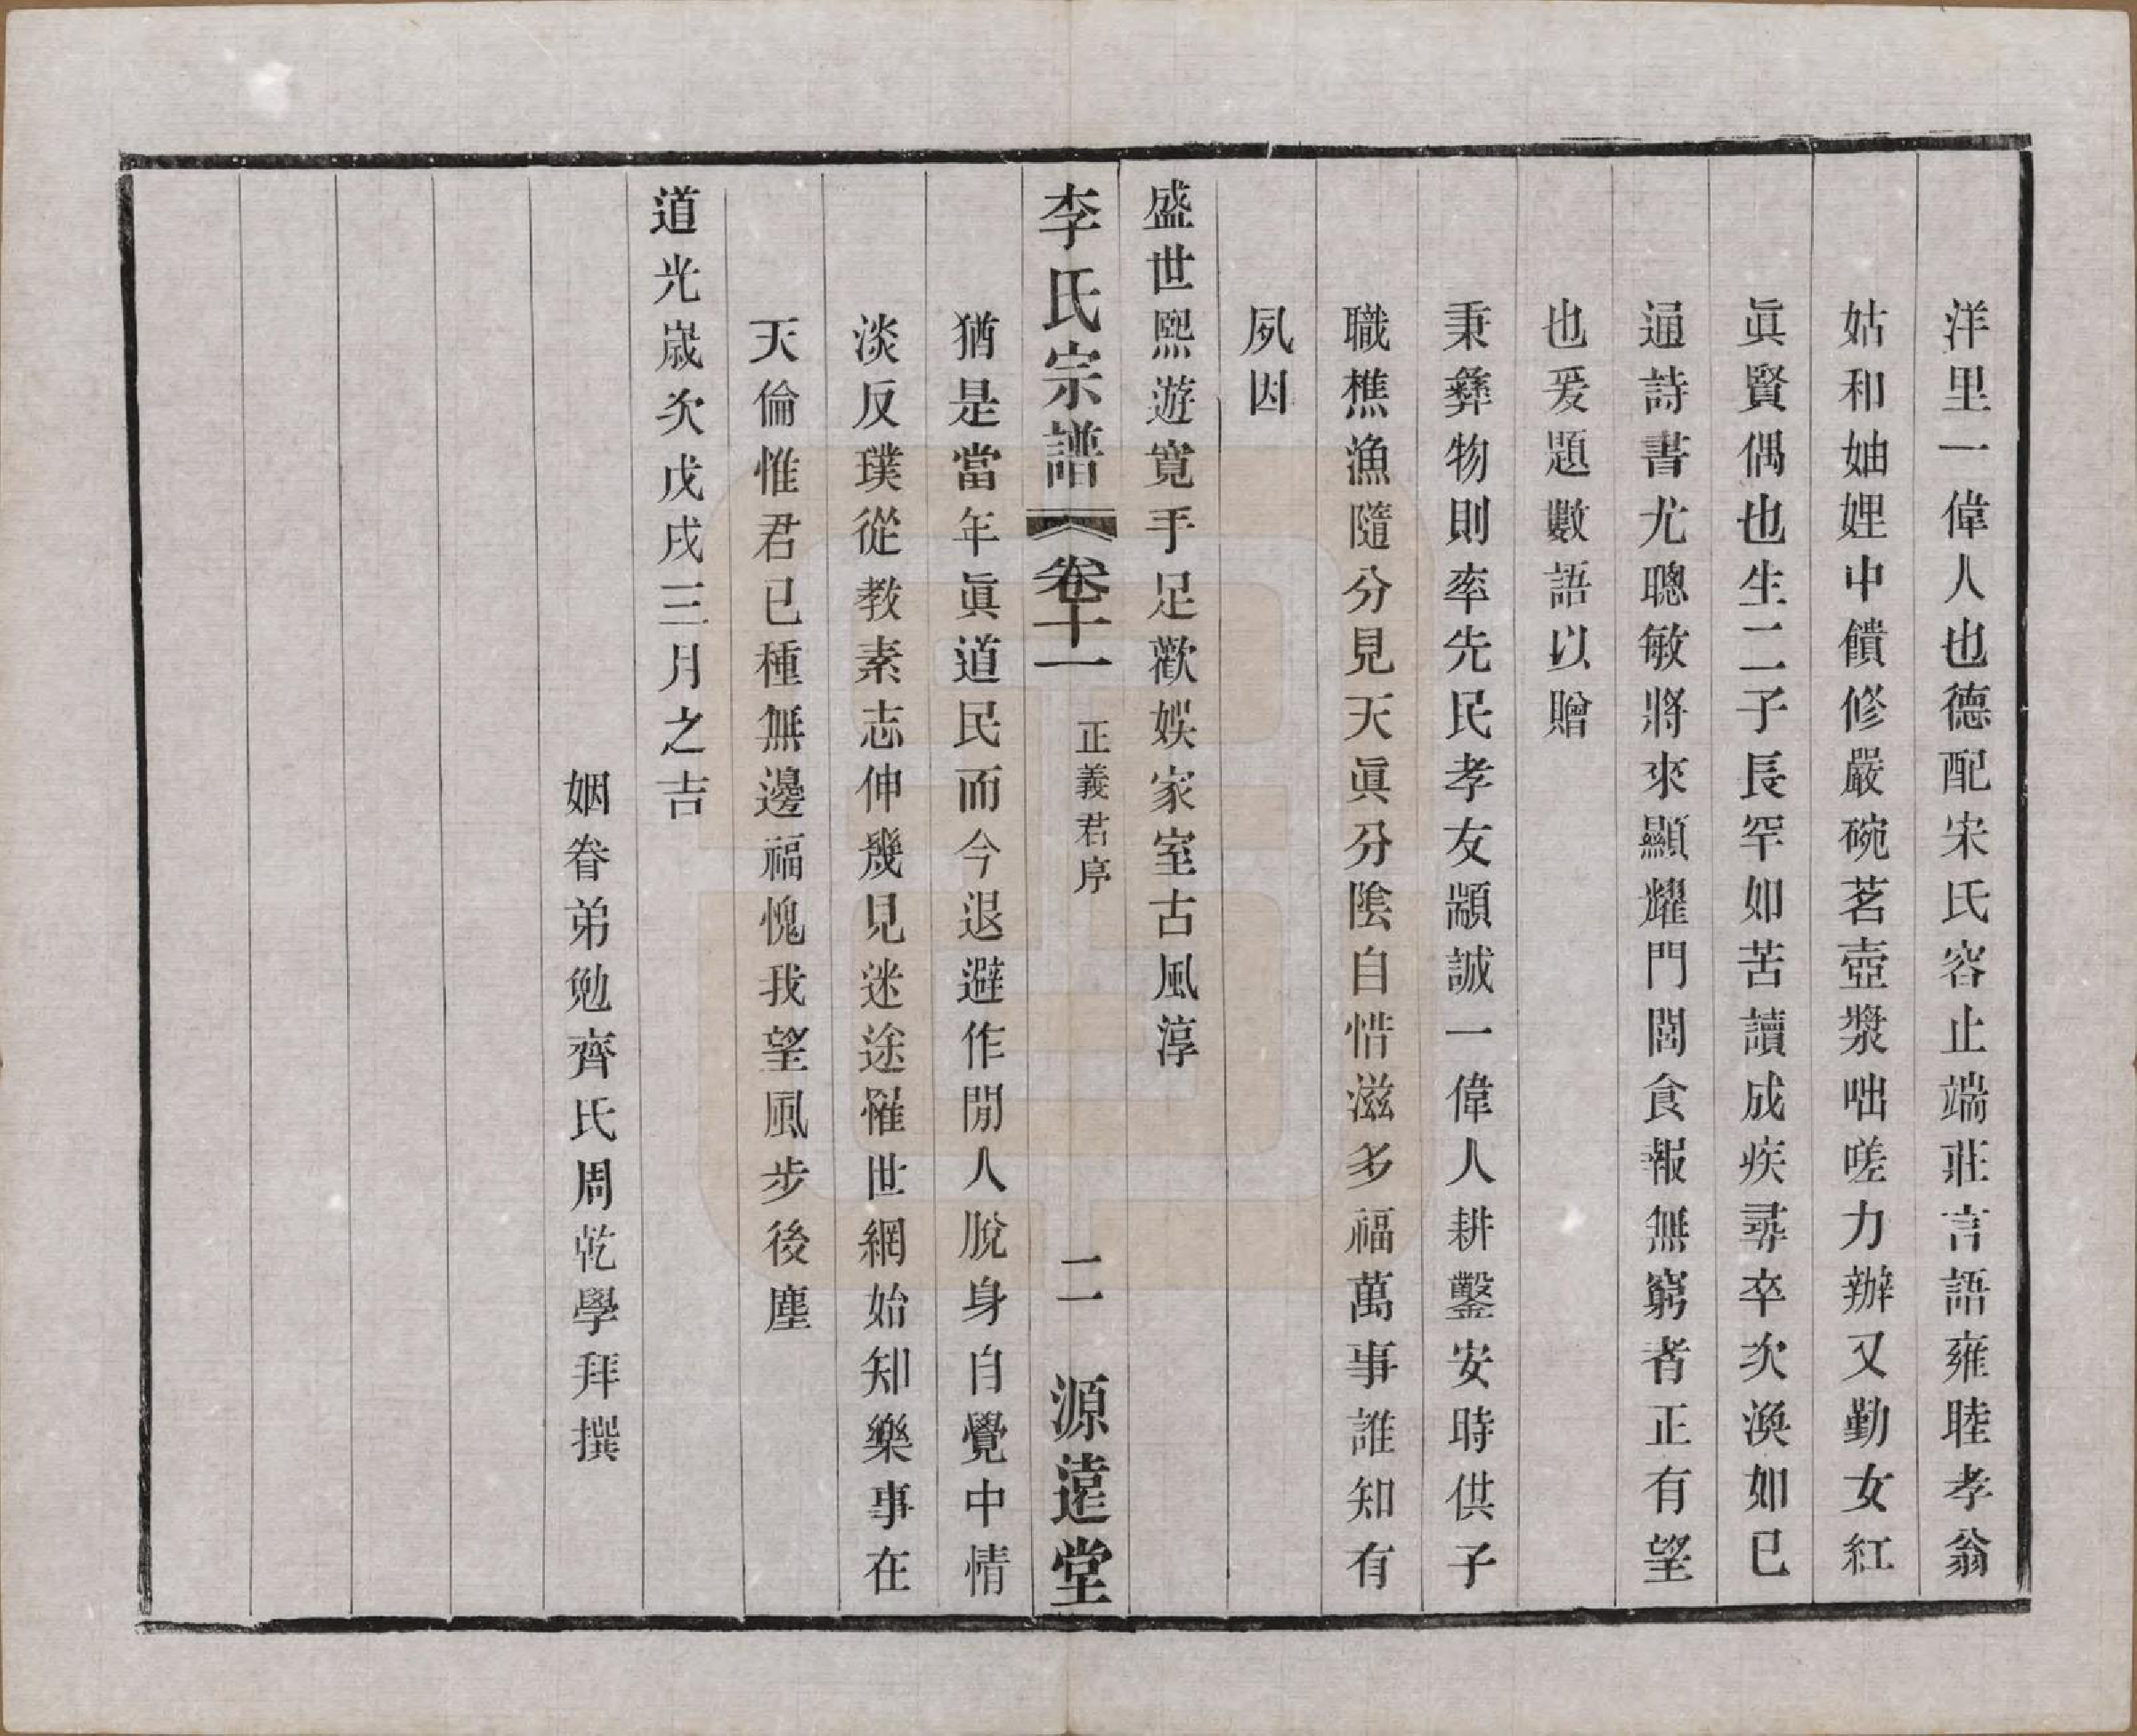 洋里一偉人也德配宋氏容止端莊言語雍睦孝翁
姑和妯娌中饋修嚴碗茗壺漿咄嗟力辦又勤女紅
眞賢偶也生二子長罕如苦讀成疾尋卒次渙如已
通詩書尤聰敏將來顯耀門閭食報無窮者正有望
也爰題數語以贈
秉彝物則率先民孝友顓誠一偉人耕鑿安時供子
職樵漁隨分見天眞分陰自惜滋多福萬事誰知有
夙因
盛世熙遊寛手足歡娛家室古風淳
李氏宗譜 卷十一 正義君序 二 源遠堂
猶是當年眞道民而今退避作閒人脫身自覺中情
淡反璞從教素志伸幾見迷途罹世網始知樂事在
天倫惟君已種無邊福愧我望風步後塵
道光歲次戊戌三月之吉
姻眷弟勉齊氏周乾學拜撰